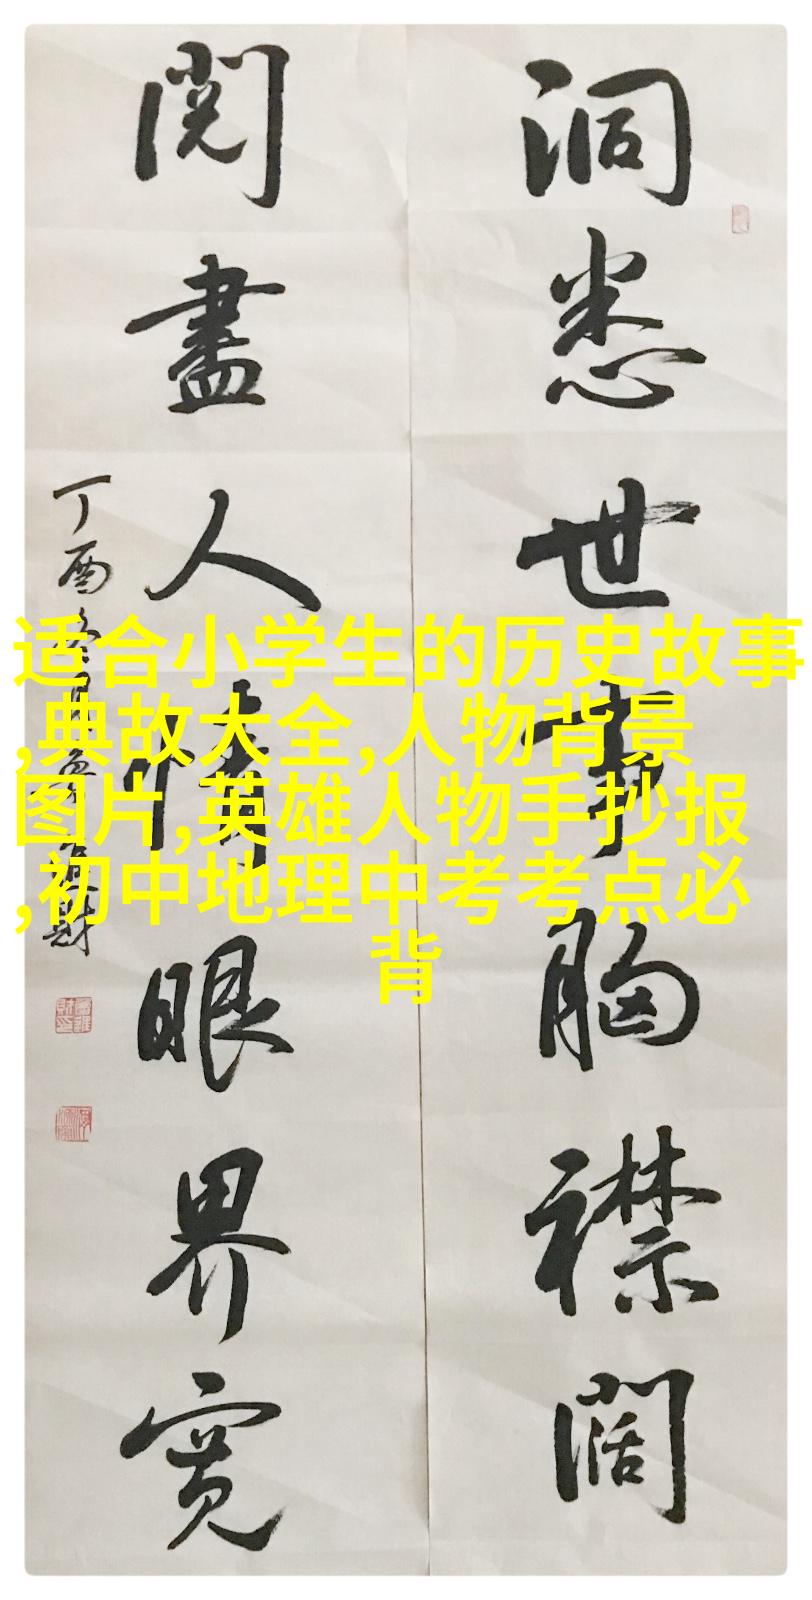 洞悉世事胸襟阔
閱盡人情眼界寬
丁酉冬月
适合小学生的历史故事
,典故大全,人物背景
图片,英雄人物手抄报
,初中地理中考考点必
背